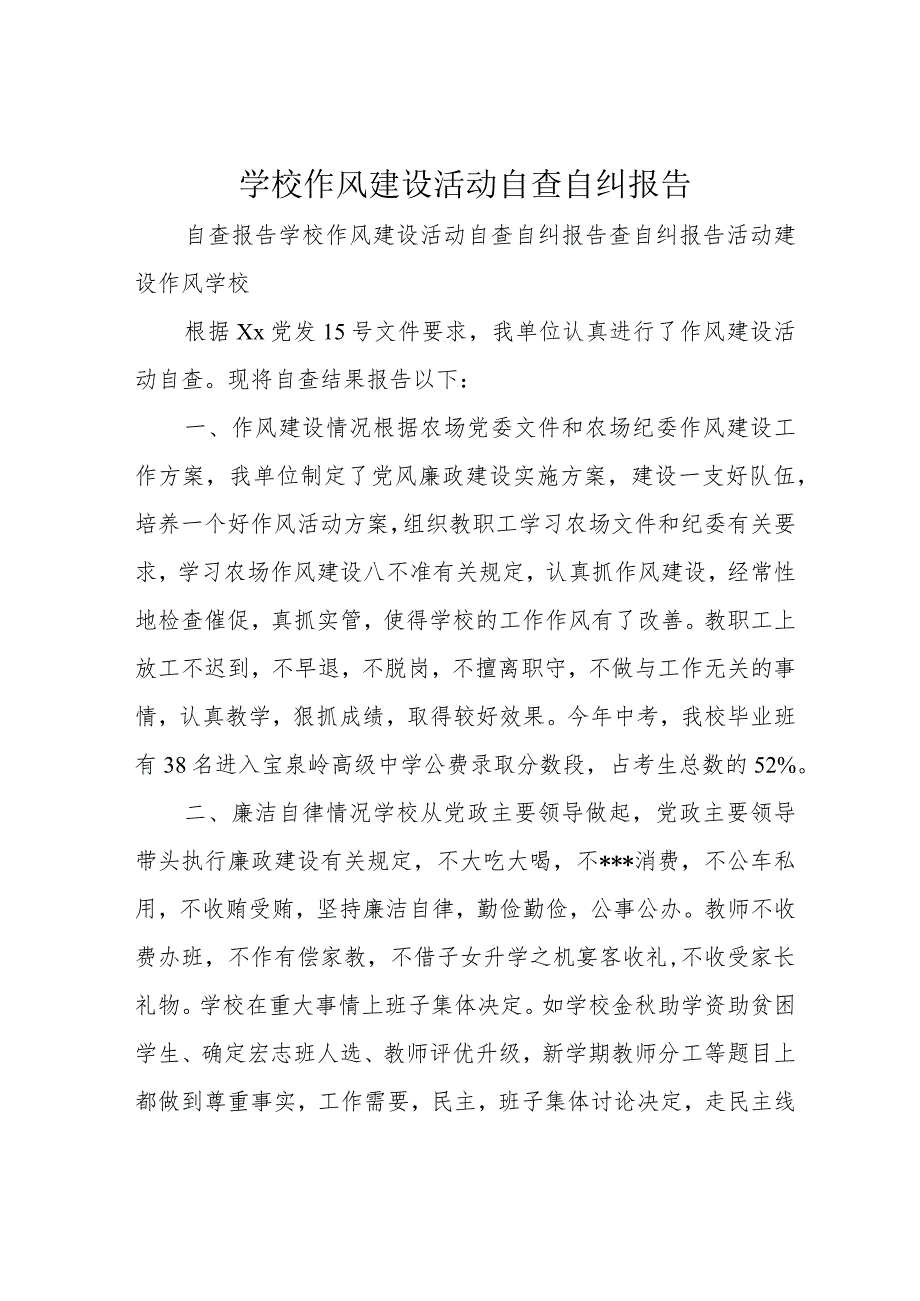 学校作风建设活动自查自纠报告
自查报告学校作风建设活动自查自纠报告查自纠报告活动建
设作风学校
根据 Xx 党发 15 号文件要求，我单位认真进行了作风建设活
动自查。现将自查结果报告以下：
一、作风建设情况根据农场党委文件和农场纪委作风建设工
作方案，我单位制定了党风廉政建设实施方案，建设一支好队伍，
培养一个好作风活动方案，组织教职工学习农场文件和纪委有关要
求，学习农场作风建设八不准有关规定，认真抓作风建设，经常性
地检查催促，真抓实管，使得学校的工作作风有了改善。教职工上
放工不迟到，不早退，不脱岗，不擅离职守，不做与工作无关的事
情，认真教学，狠抓成绩，取得较好效果。今年中考，我校毕业班
有 38 名进入宝泉岭高级中学公费录取分数段，占考生总数的 52%。
二、廉洁自律情况学校从党政主要领导做起，党政主要领导
带头执行廉政建设有关规定，不大吃大喝，不***消费，不公车私
用，不收贿受贿，坚持廉洁自律，勤俭勤俭，公事公办。教师不收
费办班，不作有偿家教，不借子女升学之机宴客收礼,不收受家长
礼物。学校在重大事情上班子集体决定。如学校金秋助学资助贫困
学生、确定宏志班人选、教师评优升级，新学期教师分工等题目上
都做到尊重事实，工作需要，民主，班子集体讨论决定，走民主线